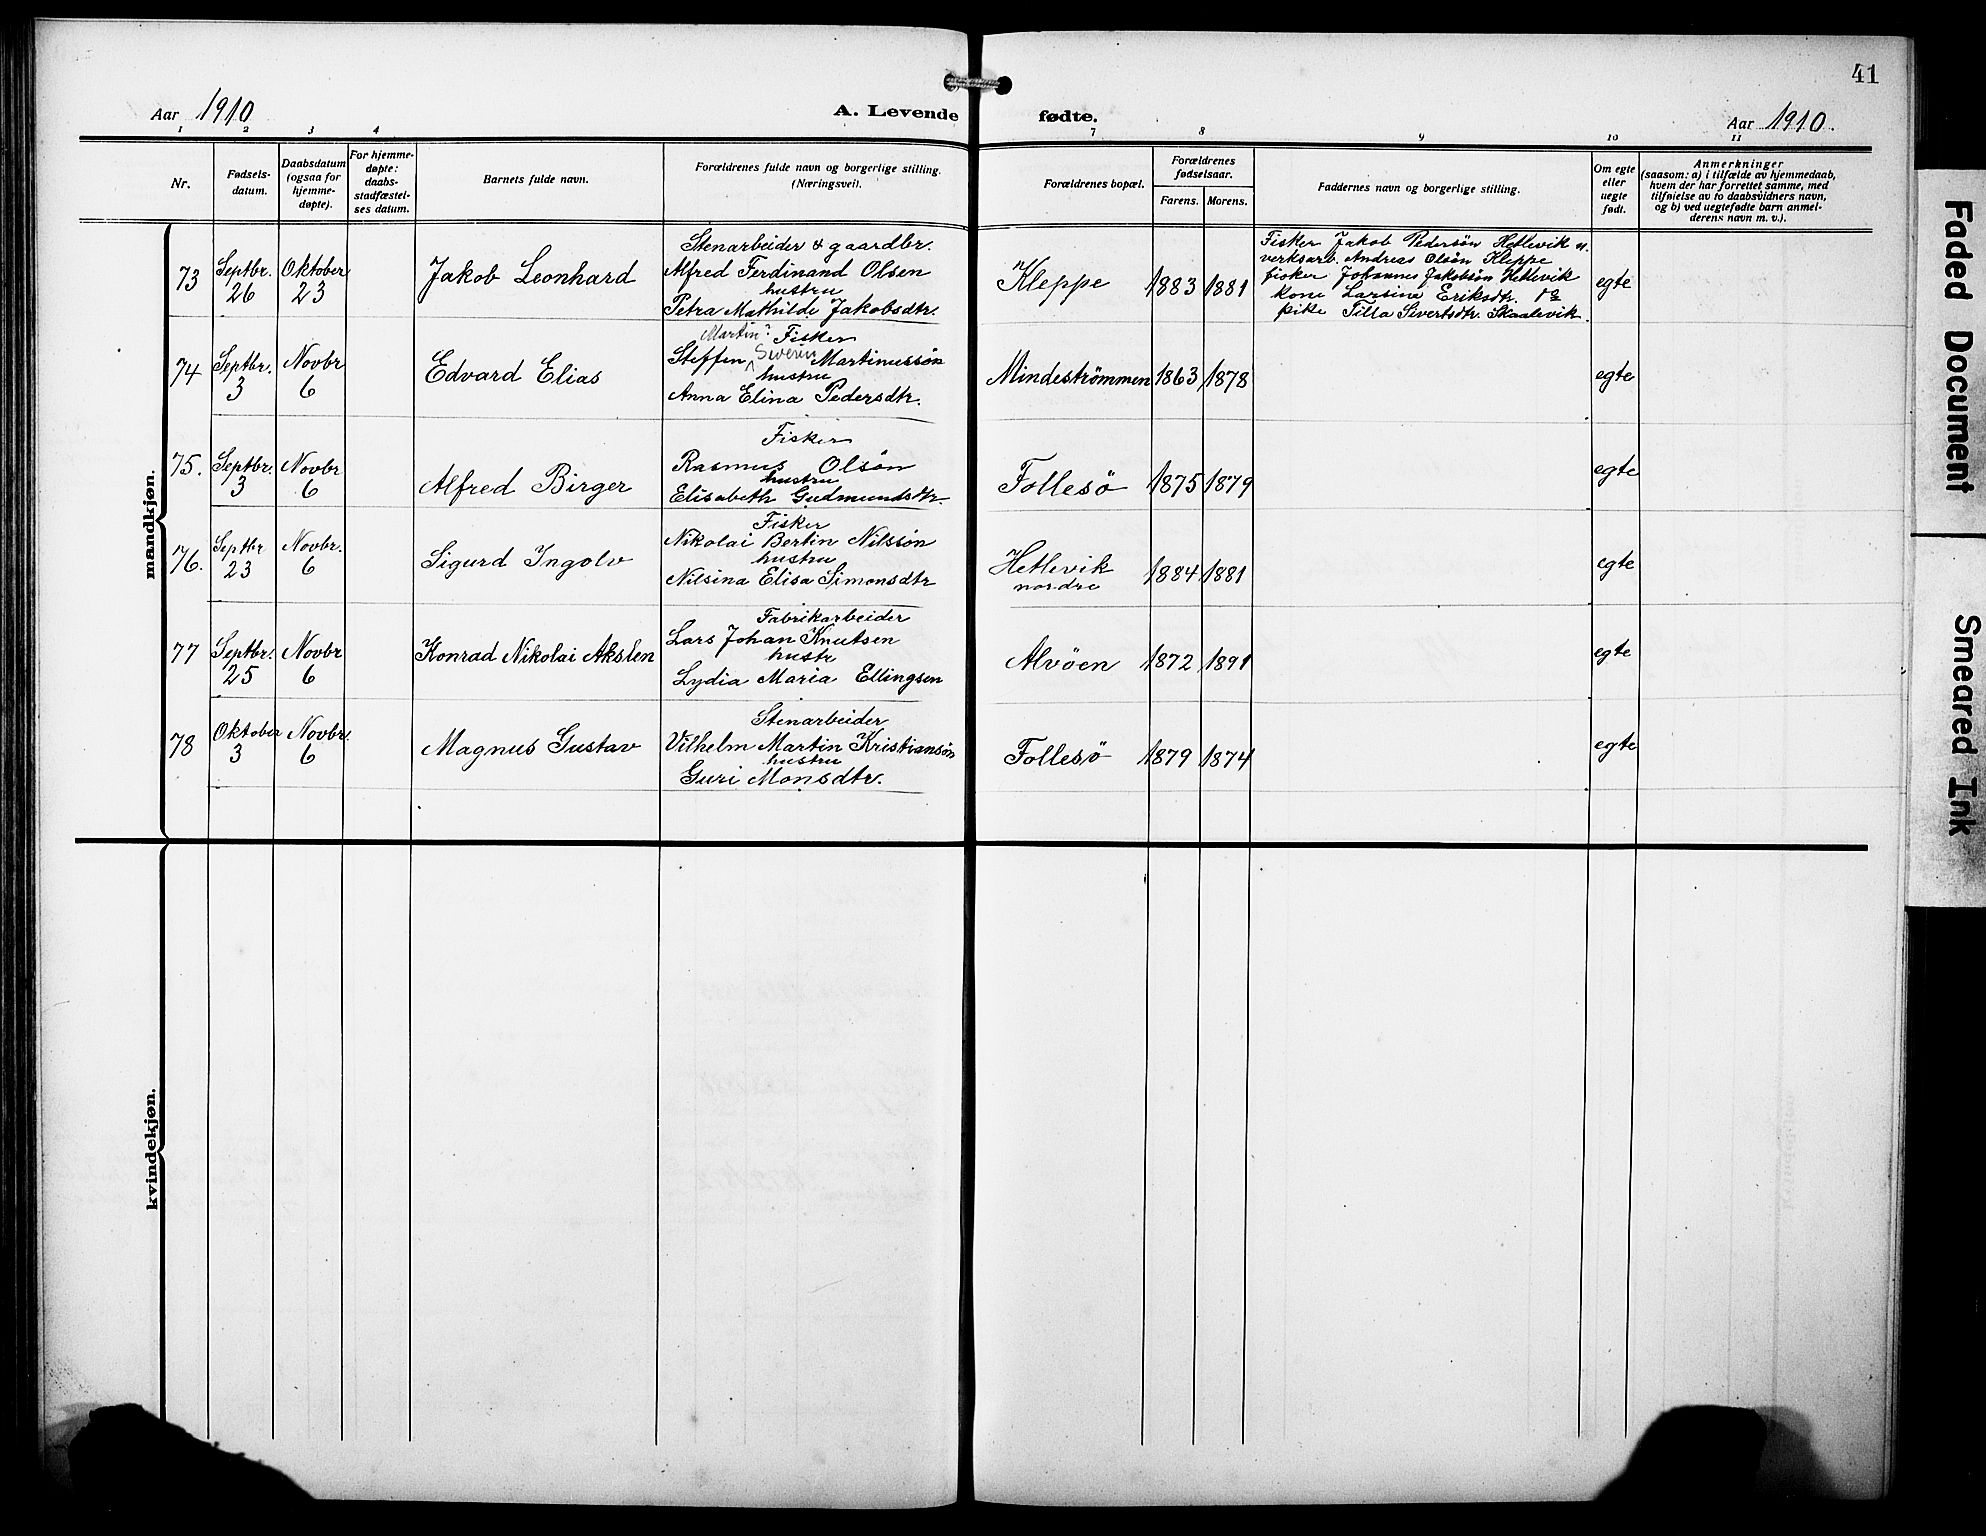 41
Aar 1910
A. Levende fødte.
Aar 1910.
1 2 3 4 7 8 9 10 11
Nr.
Fødsels-
datum.
Daabsdatum
(ogsaa for
hjemme-
døpte).
For hjemme-
døpte:
daabs-
stadfæstel-
ses datum.
Barnets fulde navn.
Forældrenes fulde navn og borgerlige stilling.
(Næringsvei).
Forældrenes bopæl.
Forældrenes
fødselsaar.
Farens. Morens.
Faddernes navn og borgerlige stilling.
Om egte
eller
uegte
født.
Anmerkninger
(saasom: a) i tilfælde av hjemmedaab,
hvem der har forrettet samme, med
tilføielse av to daabsvidners navn,
og b) ved uegtefødte barn anmel-
derens navn m. v.).
mandkjøn.
73
Septbr.
26
Oktober
23
Jakob Leonhard
Stenarbeider & gaardbr.
Alfred Ferdinand Olsen
hustru
Petra Mathilde Jakobsdtr.
Kleppe
1883 1881
Fisker Jakob Pedersön Hetlevik
verksarb. Andreas Olsön Kleppe
fisker Johannes Jakobsön Hetlevik
kone Larsine Eriksdtr.
pike Tilla Sivertsdtr. Skaalevik.
egte
74
Septbr.
3
Novbr
6
Edvard Elias
Martin? Fisker
Steffen Severin Martinussön
hustru
Anna Elina Pedersdtr.
Mindeströmmen
1863 1878
egte
75.
Septbr.
3
Novbr
6
Alfred Birger
Fisker
Rasmus Olsön
hustru
Elisabeth Gudmundsdtr.
Follesö
1875 1879
egte
76.
Septbr
23
Novbr.
6
Sigurd Ingolv
Fisker
Nikolai Bertin Nilssön
hustru
Nilsina Elisa Simonsdtr
Hetlevik
nordre
1884 1881
egte
77
Septbr.
25
Novbr
6
Konrad Nikolai Akslen
Fabrikarbeider
Lars Johan Knutsen
hustr
Lydia Maria Ellingsen
Alvöen
1872 1891
egte
78
Oktober
3
Novbr.
6
Magnus Gustav
Stenarbeider
Vilhelm Martin Kristiansön
hustru
Guri Monsdtr.
Follesö
1879 1874
egte
kvindekjøn.
Faded Document
Smeared Ink